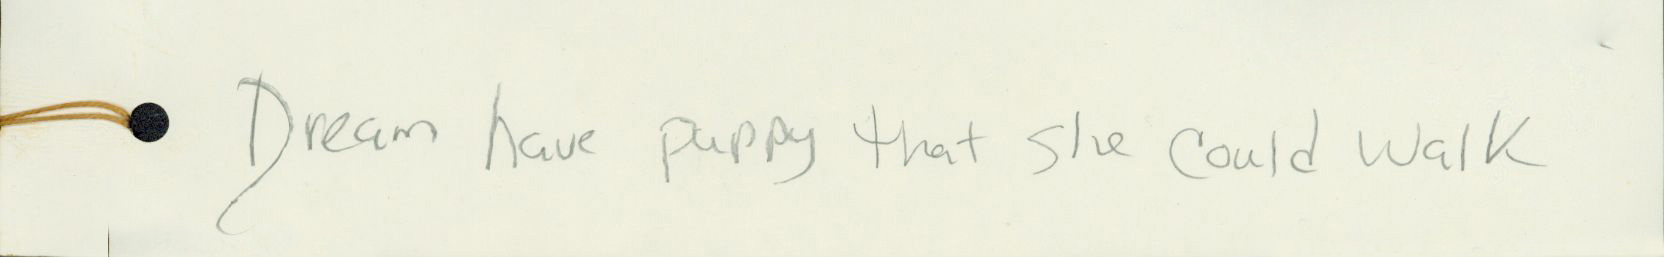 Dream have puppy that she could walk